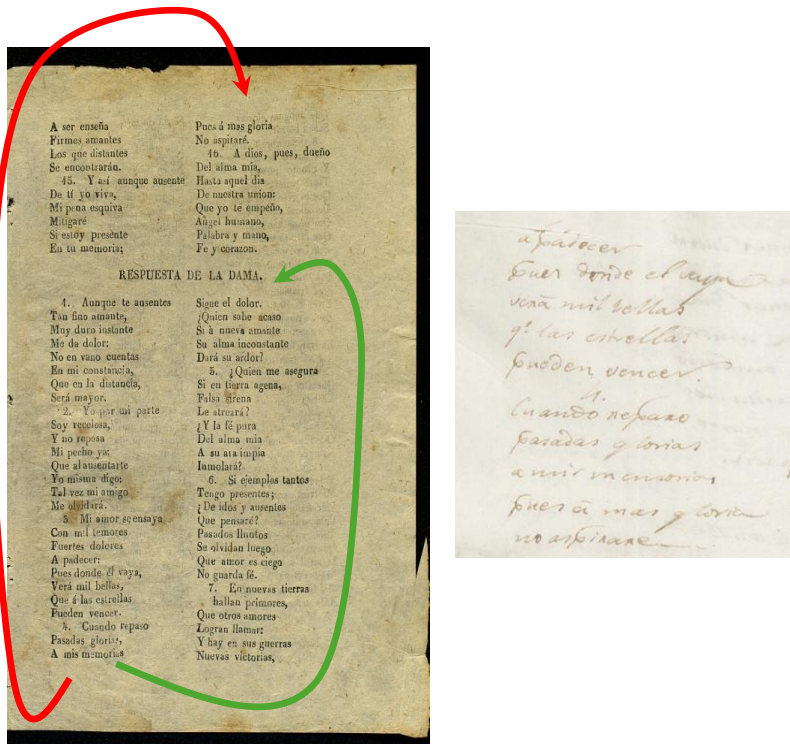 A ser enseña
Firmes amantes
Los que distantes
Se encontrarán.
45. Y así aunque ausente
De tí yo viva,
Mi pena esquiva
Mitigaré
Si estoy presente
En tu memoria;
Pues á mas gloria
No aspiraré.
46. A dios, pues, dueño
Del alma mía,
Hasta aquel dia
De nuestra union:
Que yo te empeño,
Angel humano,
Palabra y mano,
Fe y corazon.
RESPUESTA DE LA DAMA.
1. Aunque te ausentes
Tan fino amante,
Muy duro instante
Me da dolor:
No en vano cuentas
En mi constancia,
Que en la distancia,
Será mayor.
2. Yo por mi parte
Soy recelosa,
Y no reposa
Mi pecho ya:
Que al ausentarte
Yo misma digo:
Tal vez mi amigo
Me olvidará.
3. Mi amor se ensaya
Con mil temores
Fuertes dolores
A padecer:
Pues donde él vaya,
Verá mil bellas,
Que á las estrellas
Pueden vencer.
4. Cuando repaso
Pasadas glorias,
A mis memorias
Sigue el dolor.
¿Quien sabe acaso
Si á nueva amante
Su alma inconstante
Dará su ardor?
5. ¿Quien me asegura
Si en tierra agena,
Falsa sirena
Le atreará?
¿Y la fé pura
Del alma mia
A su ara impia
Inmolará?
6. Si ejemplos tantos
Tengo presentes;
¿De idos y ausentes
Que pensaré?
Pasados llantos
Se olvidan luego
Que amor es ciego
No guarda fé.
7. En nuevas tierras
hallan primores,
Que otros amores
Logran llamar:
Y hay en sus guerras
Nuevas victorias,
a pádocer
pues donde el vaya
verá mil bellas
qe las estrellas
pueden vencer.
4.
Cuando reparo
pasadas glorias
a mis memorias
pues á mas gloria
no aspirare